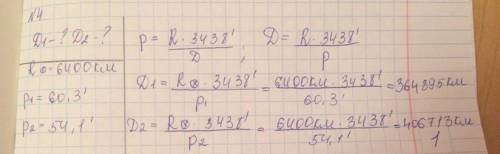 №4
D1-? D2-?
R⊕-6400км
p1=60,3'
p2=54,1'
p = R · 3438' / D ; D = R · 3438' / p
D1 = R⊕ · 3438' / p1 = 6400км · 3438' / 60,3' = 364895км
D2 = R⊕ · 3438' / p2 = 6400км · 3438' / 54,1' = 406713км
1